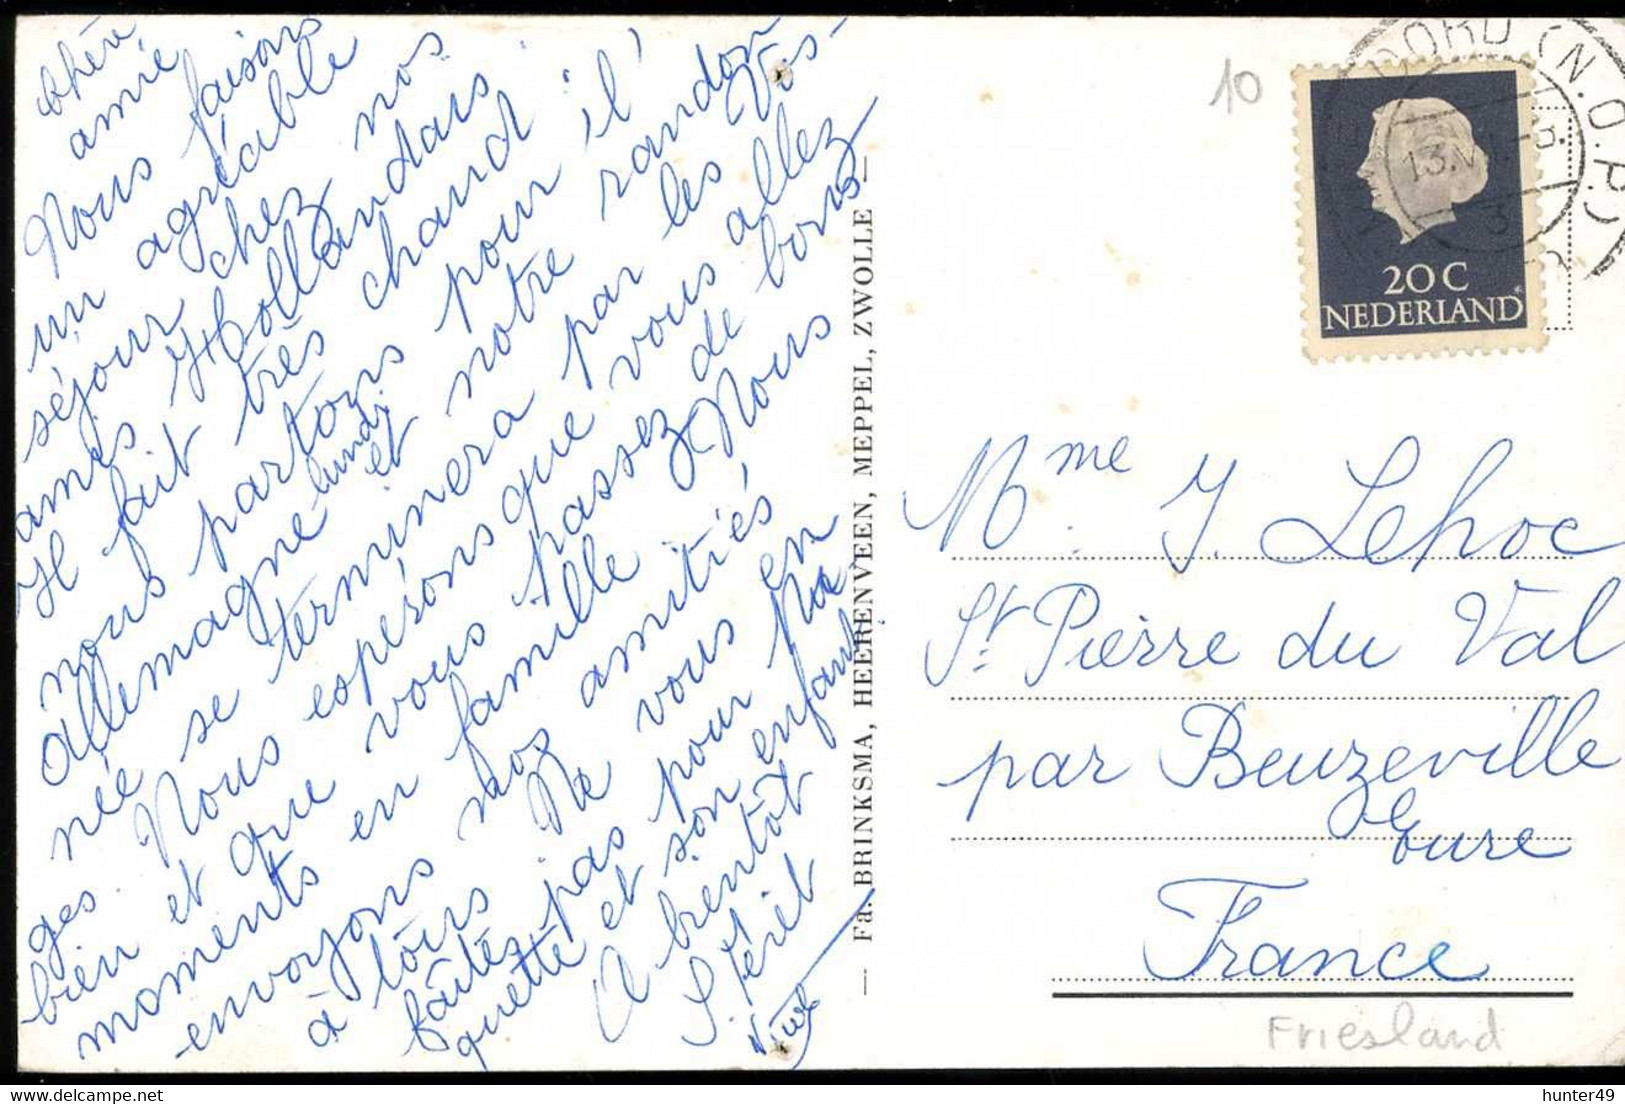 chère
amie
Nous faisons
un agréable
séjour chez nos
amis Hollandais
Il fait très chaud
nous partons pour l'
allemagne lundi et notre randon
née se terminera par les Vos-
ges. Nous espérons que vous allez
bien et que vous passez de bons
moments en famille Nous
envoyons nos amitiés
à tous Ne vous en
faites pas pour Pa
quette et son enfant
A bientôt
S. Périet
10
NOORD (N.O.P.)
13.V
3
20C
NEDERLAND
Fa. BRINKSMA, HEERENVEEN, MEPPEL, ZWOLLE
Mme. J. Lehoc
St. Pierre du Val
par Beuzeville
Eure
France
Friesland
hunter49